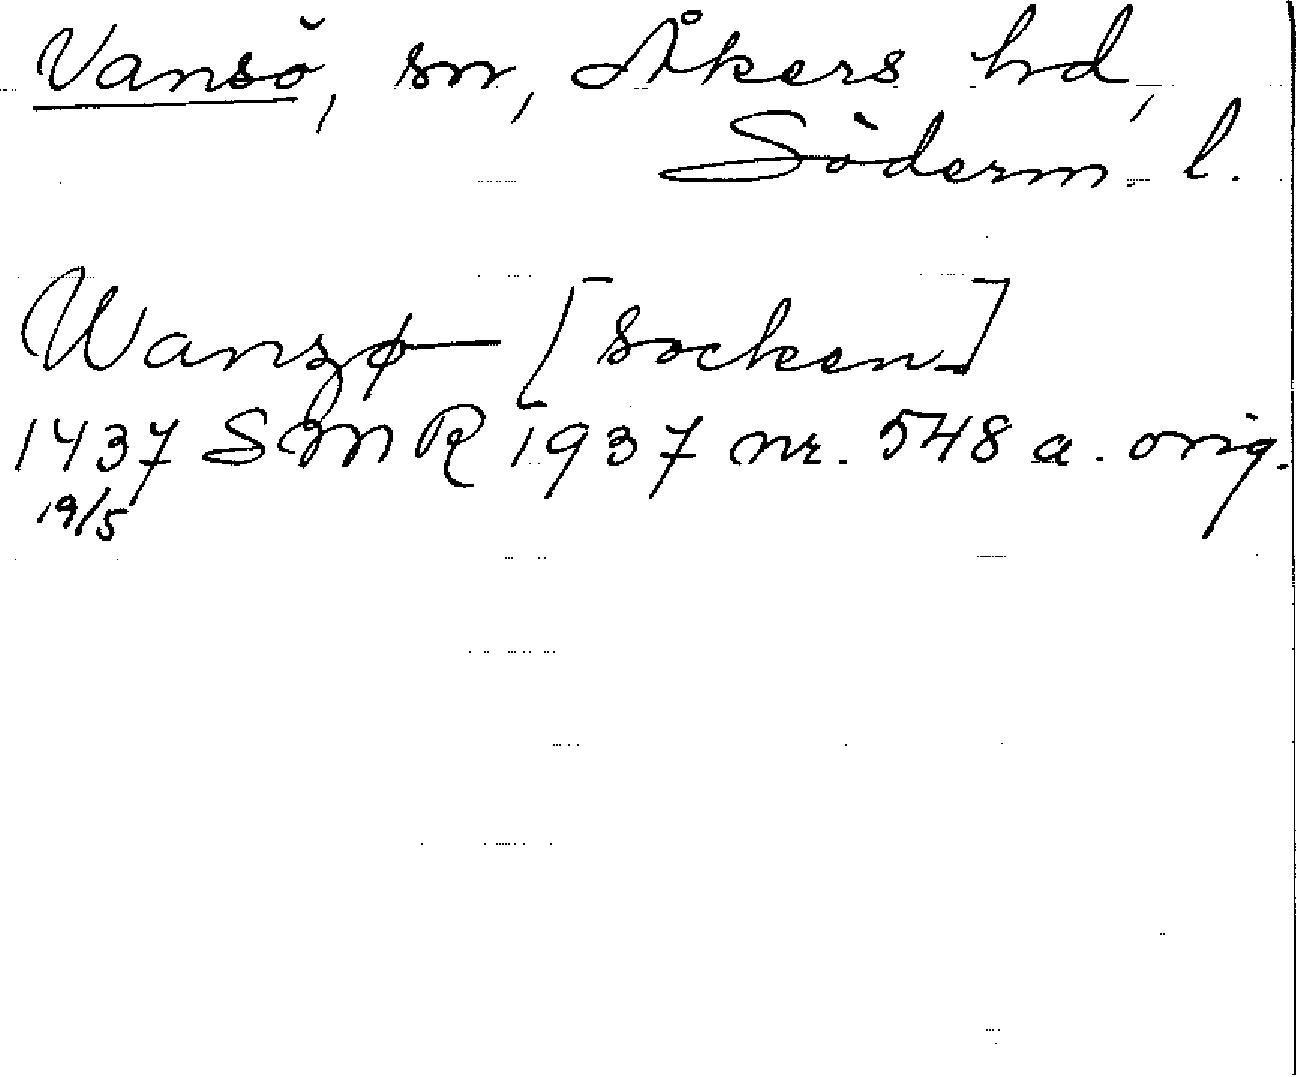 Vansö, sn, Åkers hd,
Söderm. l.
Wanzø [socken]
1437 SMR 1937 nr. 548 a. orig.
19/5